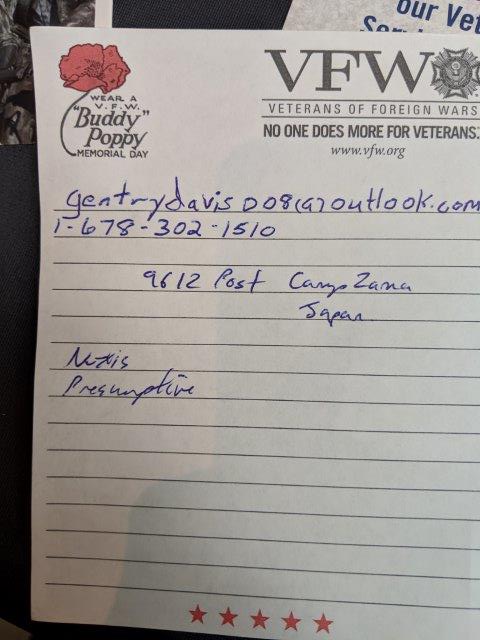 our Vet
WEAR A
V.F.W.
"Buddy"
Poppy
MEMORIAL DAY
VFW
VETERANS OF FOREIGN WARS
NO ONE DOES MORE FOR VETERANS.
www.vfw.org
gentrydavis008@outlook.com
1-678-302-1510
9612 Post Camp Zama
Japan
Nexis
Presumptive